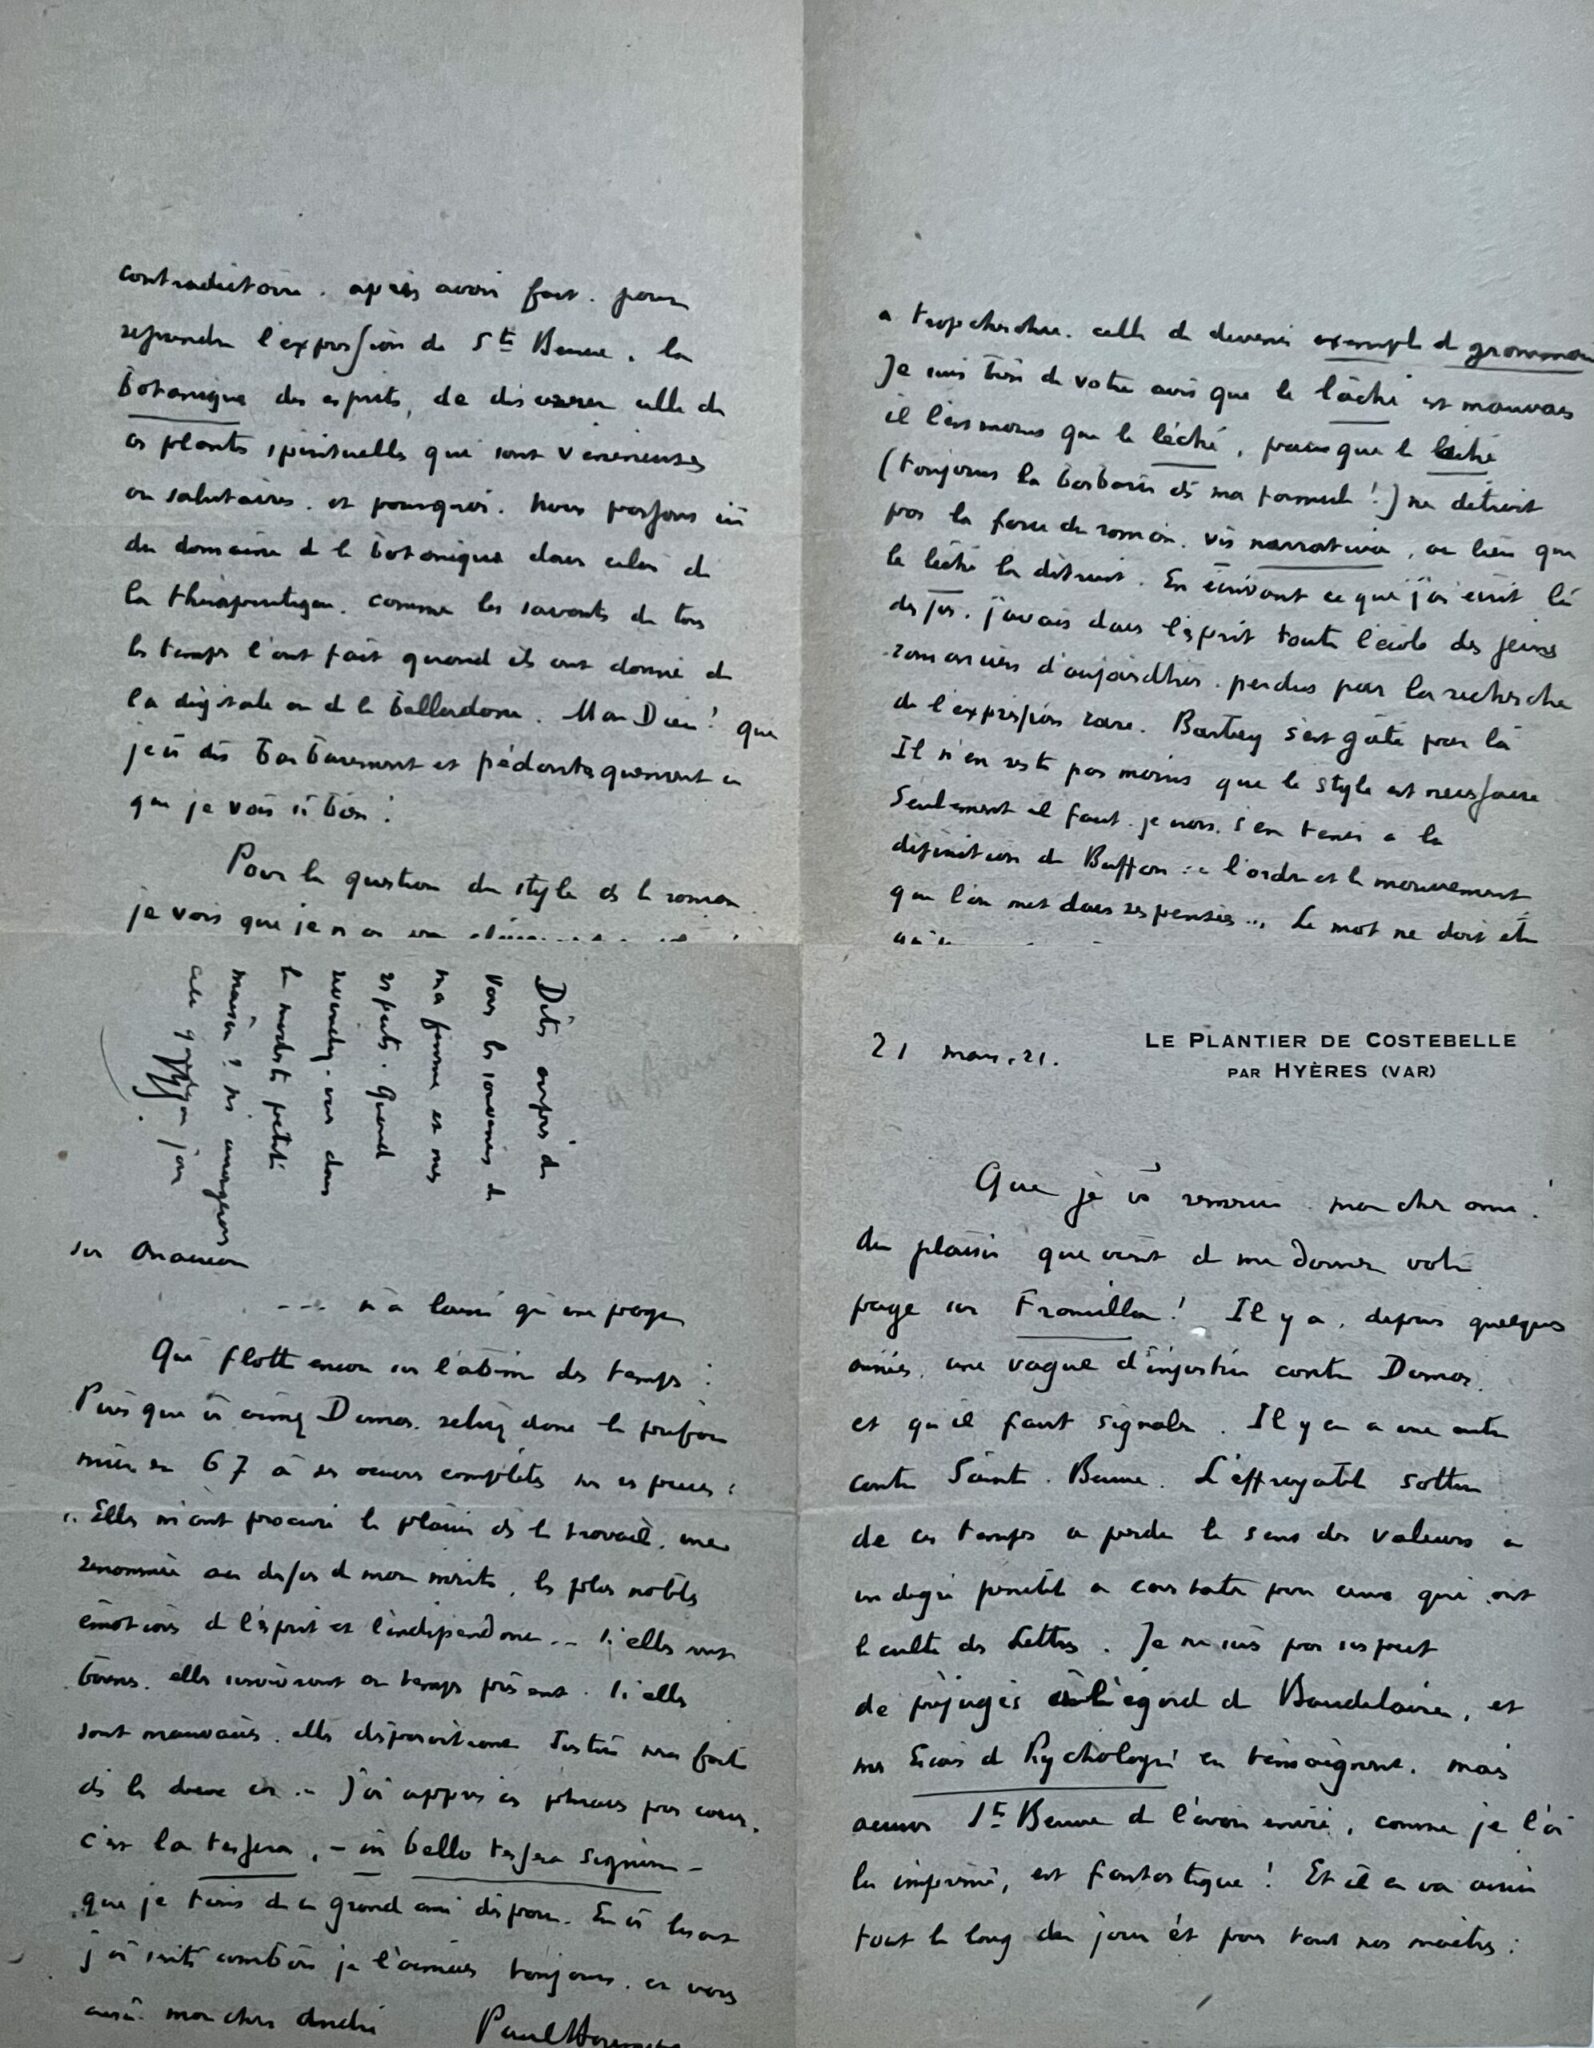 21 mars. 21.
LE PLANTIER DE COSTEBELLE
PAR HYÈRES (VAR)
Que je vs remercie. mon cher ami!
du plaisir que vient de me donner votre
page sur Froufrou! Il y a, depuis quelques
années, une vague d'injustice contre Dumas.
et qu'il faut signaler. Il y en a une autre
contre Sainte-Beuve. L'effroyable sottise
de ces temps a perdu le sens des valeurs à
un degré pénible à constater pour ceux qui ont
le culte des Lettres. Je ne suis pas suspect
de préjugés à l'égard de Baudelaire, et
mes Essais de Psychologie en témoignent. mais
accuser Ste Beuve de l'avoir envié, comme je l'ai
lu imprimé, est fantastique! Et il en va ainsi
tout le long du jour et pour tous nos maîtres:
contradictoire. après avoir fait. pour
reprendre l'expression de Ste Beuve, la
botanique des esprits, de discerner celles de
ces plantes spirituelles qui sont vénéneuses
ou salutaires. et pourquoi. Nous passons ici
du domaine de la botanique dans celui de
la thérapeutique. comme les savants de tous
les temps l'ont fait quand ils ont donné de
la digitale ou de la belladone. Mon Dieu! que
je vs dis barbarement et pédantesquement ce
que je vois si bien!
Pour la question du style ds le roman
je vois que je n'ai
a trop chercher. celle de devenir exemple de grammaire
Je suis bien de votre avis que le lâché est mauvais
il l'est moins que le léché, parce que le lâché
(toujours la barbarie ds ma formule!) ne détruit
pas la force du roman. vis narrativa, au lieu que
le léché la détruit. En écrivant ce que j'ai écrit là
dessus. j'avais dans l'esprit toute l'école des jeunes
romanciers d'aujourdhui. perdus par la recherche
de l'expression rare. s'est gâté par là
Il n'en reste pas moins que le style est nécessaire
Seulement il faut. je crois. s'en tenir à la
définition de Buffon: « l'ordre et le mouvement
que l'on met dans ses pensées... Le mot ne doit être
sur Anacréon
--- n'a laissé qu'une page
Qui flotte encor sur l'abîme des temps:
Puisque vs aimez Dumas. relisez donc la préface
mise en 67 à ses œuvres complètes sur ses pièces:
« Elles m'ont procuré le plaisir ds le travail, une
renommée au dessus de mon mérite, les plus nobles
émotions de l'esprit et l'indépendance... Si elles sont
bonnes. elles survivront au temps présent. Si elles
sont mauvaises. elles disparaitront. Justice sera faite
ds les deux cas... J'ai appris ces phrases par cœur.
c'est la tessera, - in bello tessera signum -
que je tiens de ce grand ami disparu. En vs lisant
j'ai senti combien je l'aimais toujours. et vous
aussi. mon cher André
Dites auprès de
vous les souvenirs de
ma femme et mes
respects. Quand
reviendrez-vous dans
la modeste petite
maison? ns